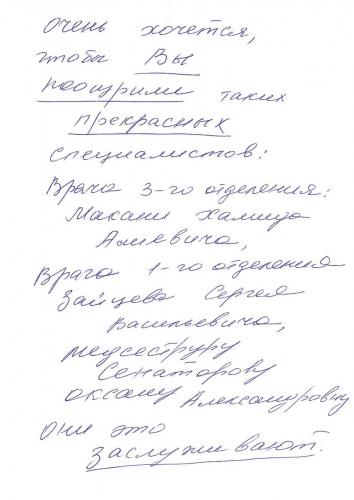 очень хочется,
чтобы Вы
поощрили таких
прекрасных
специалистов:
Врача 3-го отделения:
Макани Хамида
Алиевича,
Врача 1-го отделения
Зайцева Сергея
Васильевича,
медсестру
Сенаторову
Оксану Александровну
они это
заслуживают.